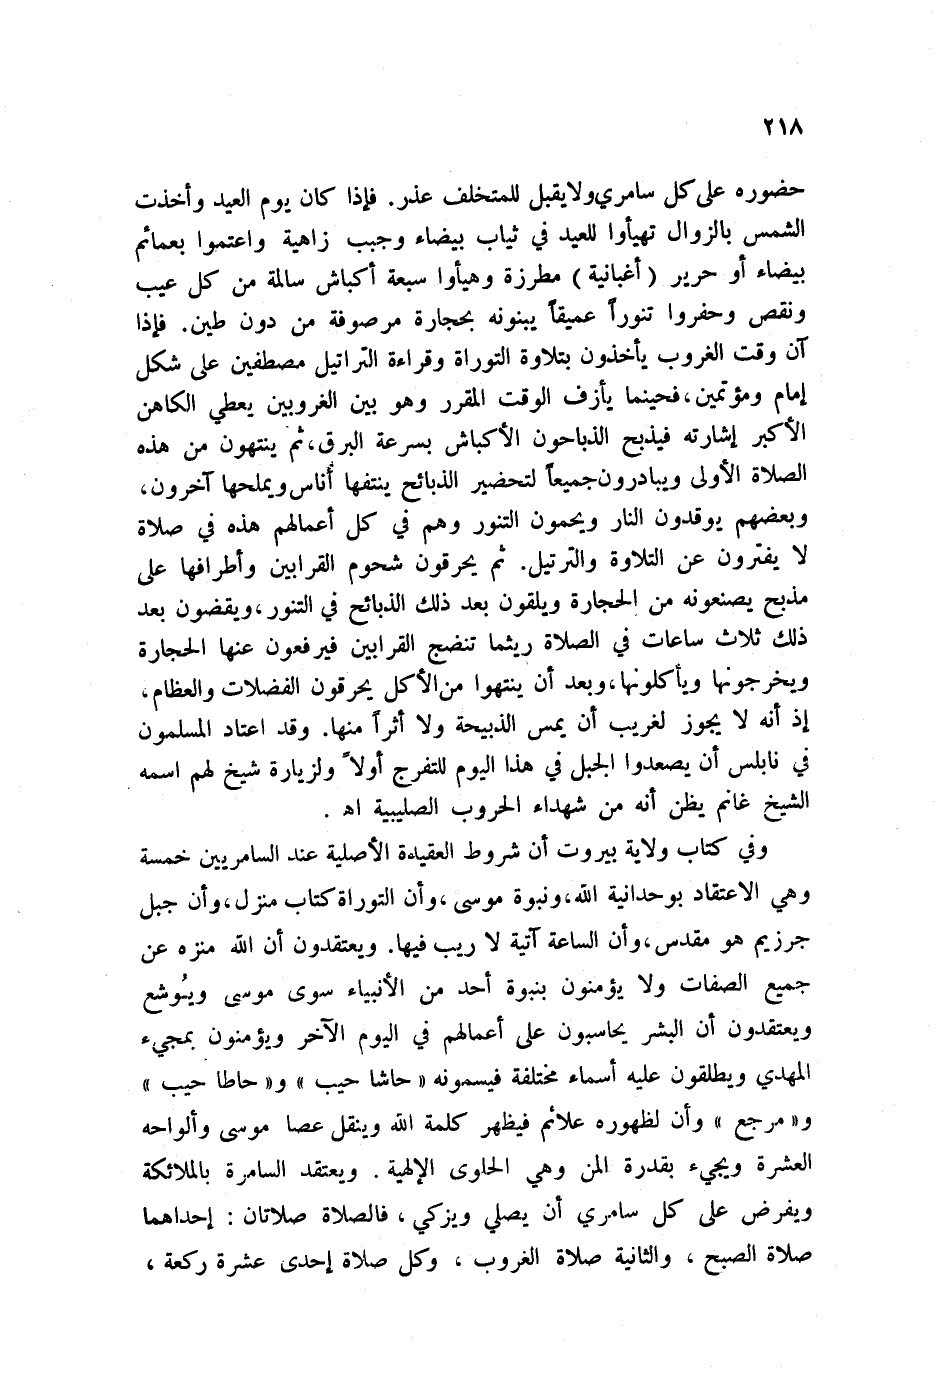 ٢١٨
حضوره على كل سامري ولا يقبل للمتخلف عذر. فإذا كان يوم العيد وأخذت
الشمس بالزوال تهيأوا للعيد في ثياب بيضاء وجبب زاهية واعتموا بعمائم
بيضاء أو حرير (أغبانية) مطرزة وهيأوا سبعة أكباش سالمة من كل عيب
ونقص وحفروا تنوراً عميقاً يبنونه بحجارة مرصوفة من دون طين. فإذا
آن وقت الغروب يأخذون بتلاوة التوراة وقراءة التراتيل مصطفين على شكل
إمام ومؤتمين، فحينما يأزف الوقت المقرر وهو بين الغروبين يعطي الكاهن
الأكبر إشارته فيذبح الذباحون الأكباش بسرعة البرق، ثم ينتهون من هذه
الصلاة الأولى ويبادرون جميعاً لتحضير الذبائح ينتفها أُناس ويملحها آخرون،
وبعضهم يوقدون النار ويحمون التنور وهم في كل أعمالهم هذه في صلاة
لا يفترون عن التلاوة والترتيل. ثم يحرقون شحوم القرابين وأطرافها على
مذبح يصنعونه من الحجارة ويلقون بعد ذلك الذبائح في التنور، ويقضون بعد
ذلك ثلاث ساعات في الصلاة ريثما تنضج القرابين فيرفعون عنها الحجارة
ويخرجونها ويأكلونها، وبعد أن ينتهوا من الأكل يحرقون الفضلات والعظام،
إذ أنه لا يجوز لغريب أن يمس الذبيحة ولا أثراً منها. وقد اعتاد المسلمون
في نابلس أن يصعدوا الجبل في هذا اليوم للتفرج أولاً ولزيارة شيخ لهم اسمه
الشيخ غانم يظن أنه من شهداء الحروب الصليبية اه .
وفي كتاب ولاية بيروت أن شروط العقيدة الأصلية عند السامريين خمسة
وهي الاعتقاد بوحدانية الله، ونبوة موسى، وأن التوراة كتاب منزل، وأن جبل
جرزيم هو مقدس، وأن الساعة آتية لا ريب فيها. ويعتقدون أن الله منزه عن
جميع الصفات ولا يؤمنون بنبوة أحد من الأنبياء سوى موسى ويُوشع
ويعتقدون أن البشر يحاسبون على أعمالهم في اليوم الآخر ويؤمنون بمجيء
المهدي ويطلقون عليه أسماء مختلفة فيسمونه «حاشا حيب» و«حاطا حيب»
و«مرجع» وأن لظهوره علائم فيظهر كلمة الله وينقل عصا موسى وألواحه
العشرة ويجيء بقدرة المن وهي الحلوى الإلهية . ويعتقد السامرة بالملائكة
ويفرض على كل سامري أن يصلي ويزكي ، فالصلاة صلاتان : إحداهما
صلاة الصبح ، والثانية صلاة الغروب ، وكل صلاة إحدى عشرة ركعة ،